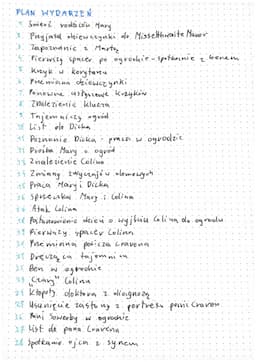 PLAN WYDARZEŃ
1. Śmierć rodziców Mary
2. Przyjazd dziewczynki do Misselthwaite Manor
3. Zapoznanie z Martą
4. Pierwszy spacer po ogrodzie - spotkanie z Benem
5. Krzyk w korytarzu
6. Przemiana dziewczynki
7. Ponowne usłyszenie krzyków
8. Znalezienie klucza
9. Tajemniczy ogród
10. List do Dicka
11. Poznanie Dicka - praca w ogrodzie
12. Prośba Mary o ogród
13. Znalezienie Colina
14. Zmiany zwyczajów domowych
15. Praca Mary i Dicka
16. Sprzeczka Mary i Colina
17. Atak Colina
18. dzieci o wyjściu Colina do ogrodu
19. Pierwszy spacer Colina
20. Przemiana panicza Cravena
21. Dręcząca tajemnica
22. Ben w ogrodzie
23. „Czary” Colina
24. Kłopoty doktora z diagnozą
25. Usunięcie zasłony z portretu pani Craven
26. Pani Sowerby w ogrodzie
27. List do pana Cravena
28. Spotkanie ojca z synem